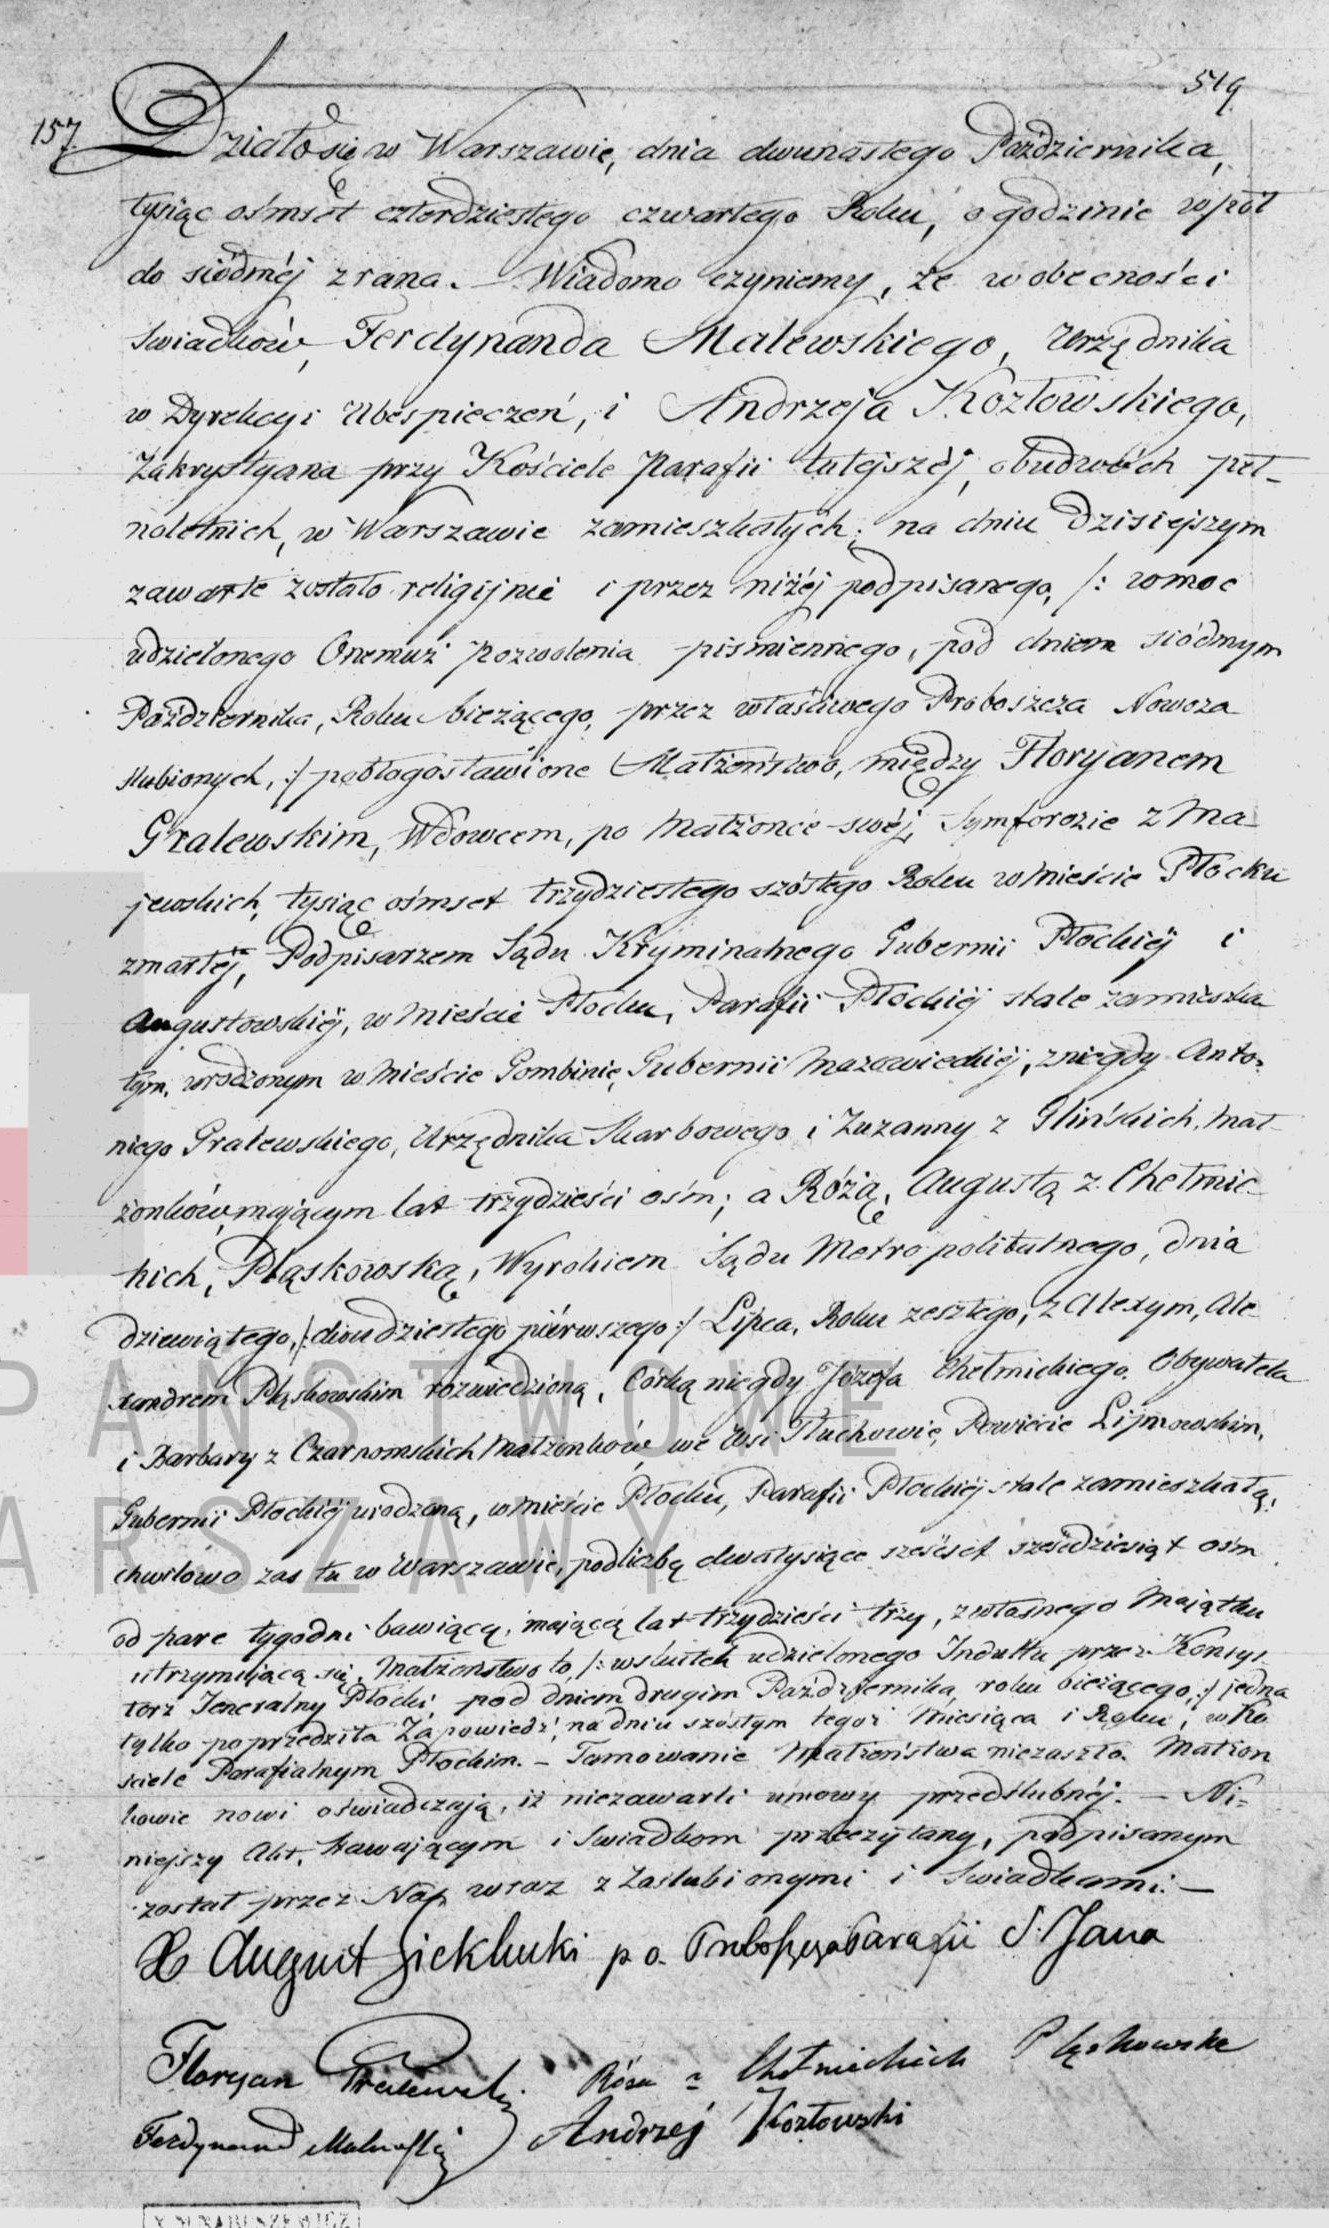 519
157.
Działo się w Warszawie, dnia dwunastego Października,
tysiąc ośmset czterdziestego czwartego Roku, o godzinie wpół
do siódméj z rana. — Wiadomo czyniemy, że w obecności
Swiadków, Ferdynanda Malewskiego, Urzędnika
w Dyrekcyi Ubespieczeń, i Andrzeja Kozłowskiego,
Zakrystyana przy Kościele Parafii tutejszéj, obudwóch peł-
noletnich, w Warszawie zamieszkałych; na dniu dzisiejszym
zawarte zostało religijnie i przez niżéj podpisanego, /: w moc
udzielonego Onemuż Pozwolenia piśmiennego, pod dniem siódmym
Października, Roku bieżącego, przez właściwego Proboszcza Nowoza
slubionych, :/ pobłogosławione Małżeństwo, między Floryanem
Gralewskim, Wdowcem, po Małżonce swéj, Symforozie z Ma-
jewskich, tysiąc ośmset trzydziestego szóstego Roku w Mieście Płocku
zmarłéj, Podpisarzem Sądu Kryminalnego Gubernii Płockiéj i
Augustowskiéj, w Mieście Płocku, Parafii Płockiéj stale zamieszka
łym, urodzonym w Mieście Gombinie, Gubernii Mazowieckiéj, z niegdy Anto-
niego Gralewskiego, Urzędnika Skarbowego i Zuzanny z Glińskich, Mał-
żonków, mającym lat trzydzieści ośm; a Różą, Augustą z Chełmic-
kich, Pląskowską, Wyrokiem Sądu Metropolitalnego, dnia
dziewiątego, /: dwudziestego piérwszego :/ Lipca, Roku zeszłego, z Alexym, Ale
xandrem Pląskowskim rozwiedzioną, Córką niegdy Józefa Chełmickiego, Obywatela
i Barbary z Czarnomskich Małżonków, we Wsi Tłuchowie, Powiecie Lipnowskim,
Gubernii Płockiéj urodzoną, w Mieście Płocku, Parafii Płockiéj stale zamieszkałą,
chwilowo zaś tu w Warszawie, pod liczbą dwa tysiące sześćset sześćdziesiąt ośm
od pare tygodni bawiącą, mającą lat trzydzieści trzy, z własnego Majątku
utrzymującą się. Małżeństwo to, /: w skutek udzielonego Indultu przez Konsys
torz Jeneralny Płocki pod dniem drugim Października, roku bieżącego, :/ jedna
tylko poprzedziła Zapowiedź, na dniu szóstym tegoż Miesiąca i Roku, w Ko
sciele Parafialnym Płockim. — Tamowanie Małżeństwa niezaszło. Małżon
kowie nowi oświadczają, iż niezawarli umowy przedślubnéj. — Ni-
niejszy Akt, Stawającym i Swiadkom przeczytany, podpisanym
został przez Nas wraz z Zaslubionymi i Swiadkami. —
X August p. o. Proboszcza Parafii S. Jana
Floryan Gralewski Róża z Chełmickich Pląskowska
Ferdynand Malewski Andrzej Kozłowski
PAŃSTWOWE
WARSZAWY